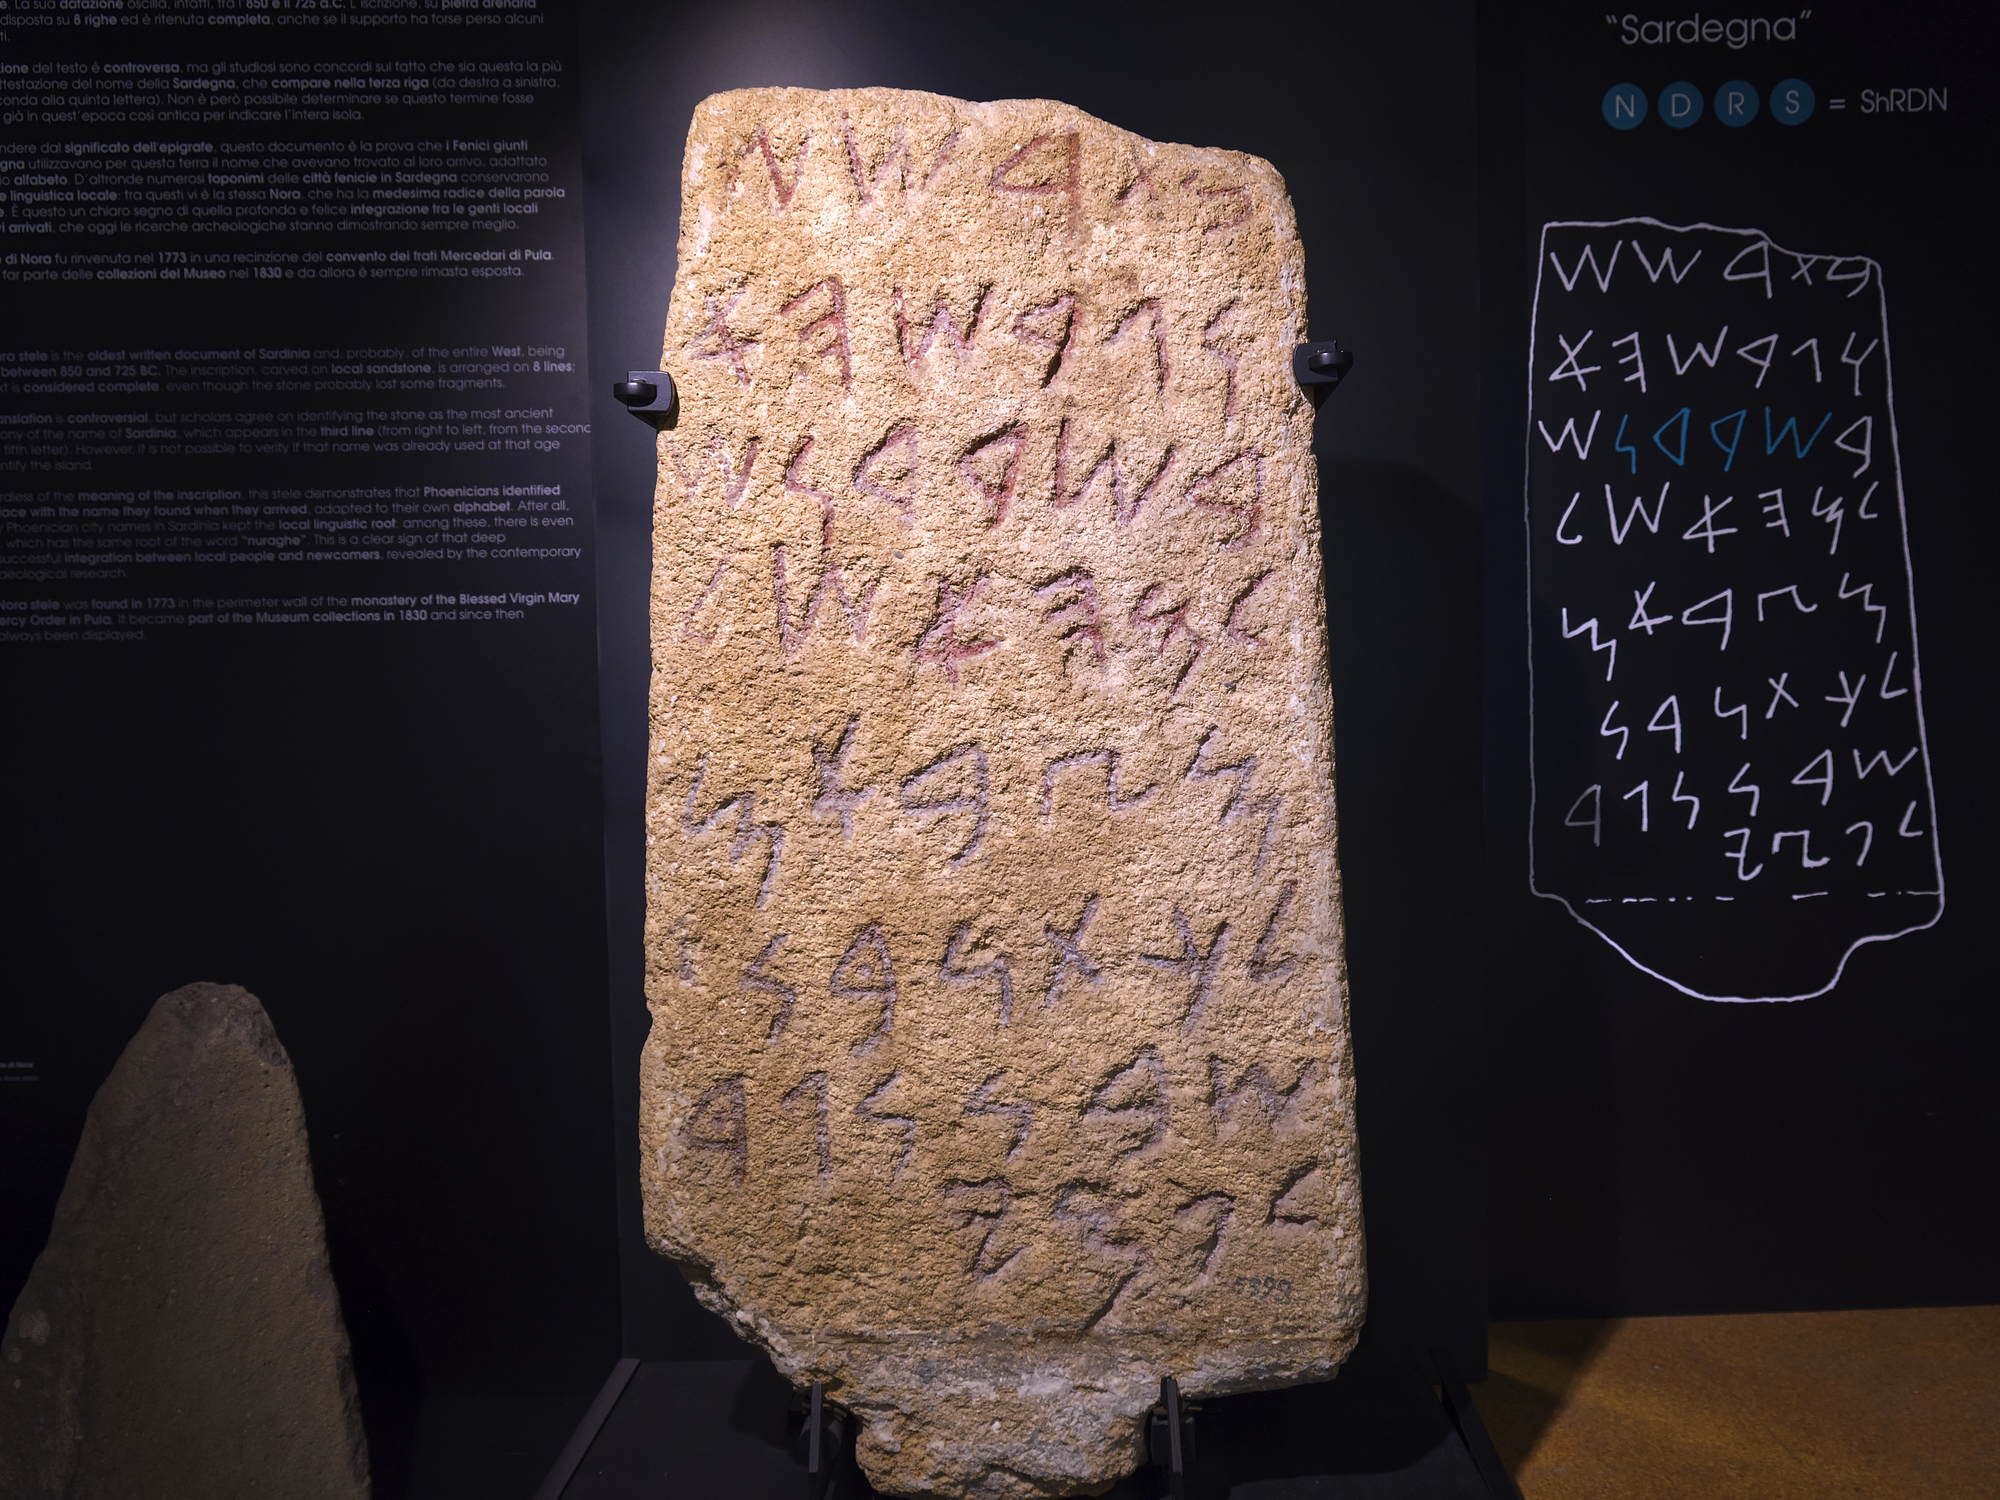 La sua datazione oscilla, infatti, tra l'850 e il 725 a.C. L'iscrizione, su pietra arenaria
disposta su 8 righe ed è ritenuta completa, anche se il supporto ha forse perso alcuni
del testo è controversa, ma gli studiosi sono concordi sul fatto che sia questa la più
del nome della Sardegna, che compare nella terza riga (da destra a sinistra,
alla quinta lettera). Non è però possibile determinare se questo termine fosse
già in quest'epoca così antica per indicare l'intera isola.
dal significato dell'epigrafe, questo documento è la prova che i Fenici giunti
utilizzavano per questa terra il nome che avevano trovato al loro arrivo, adattato
alfabeto. D'altronde numerosi toponimi delle città fenicie in Sardegna conservarono
linguistica locale: tra questi vi è la stessa Nora, che ha la medesima radice della parola
È questo un chiaro segno di quella profonda e felice integrazione tra le genti locali
arrivati, che oggi le ricerche archeologiche stanno dimostrando sempre meglio.
di Nora fu rinvenuta nel 1773 in una recinzione del convento dei frati Mercedari di Pula.
far parte delle collezioni del Museo nel 1830 e da allora è sempre rimasta esposta.
stele is the oldest written document of Sardinia and, probably, of the entire West, being
between 850 and 725 BC. The inscription, carved on local sandstone, is arranged on 8 lines;
is considered complete, even though the stone probably lost some fragments.
is controversial, but scholars agree on identifying the stone as the most ancient
of the name of Sardinia, which appears in the third line (from right to left, from the second
fifth letter). However, it is not possible to verify if that name was already used at that age
the island.
of the meaning of the inscription, this stele demonstrates that Phoenicians identified
with the name they found when they arrived, adapted to their own alphabet. After all,
Phoenician city names in Sardinia kept the local linguistic root: among these, there is even
which has the same root of the word "nuraghe". This is a clear sign of that deep
successful integration between local people and newcomers, revealed by the contemporary
research.
Nora stele was found in 1773 in the perimeter wall of the monastery of the Blessed Virgin Mary
Order in Pula. It became part of the Museum collections in 1830 and since then
always been displayed.
𐤁𐤕𐤓𐤔𐤔
𐤅𐤂𐤓𐤔𐤄𐤀
𐤁𐤔𐤓𐤃𐤍𐤔
𐤋𐤌𐤄𐤀𐤔𐤋
𐤌𐤑𐤁𐤀𐤌
𐤋𐤊𐤕𐤍𐤁𐤍
𐤔𐤁𐤍𐤍𐤂𐤃
𐤋𐤐𐤌𐤉
"Sardegna"
N D R S = ShRDN
𐤁𐤕𐤓𐤔𐤔
𐤅𐤂𐤓𐤔𐤄𐤀
𐤁𐤔𐤓𐤃𐤍𐤔
𐤋𐤌𐤄𐤀𐤔𐤋
𐤌𐤑𐤁𐤀𐤌
𐤋𐤊𐤕𐤍𐤁𐤍
𐤔𐤁𐤍𐤍𐤂𐤃
𐤋𐤐𐤌𐤉